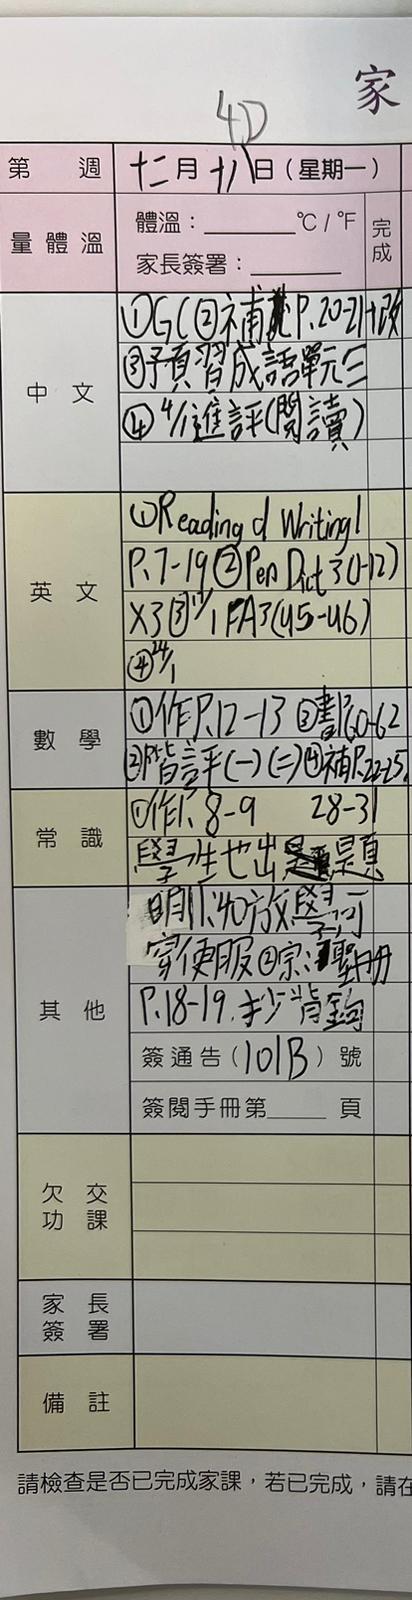 家
4D
第 週 十二月十八日（星期一）
量體溫 體溫：______℃/℉ 完成
家長簽署：______
中文 ①GC②補 P.20-21+改
③預習成語單元三
④4/1進評(閱讀)
英文 ①Reading d Writing1
P.7-19②Pen Dict 3(1-12)
X3③11/1 FA3(U5-U6)
④24/1
數學 ①作P.12-13 ③書P.60-62
②階評(一)(二)④補P.22-25
常識 ①作P.8-9 28-31
學生也出題
其他 明11:40放學可
穿便服②宗 聖册
P.18-19.抄背
簽通告(101B)號
簽閱手冊第____頁
欠交功課
家長簽署
備註
請檢查是否已完成家課，若已完成，請在